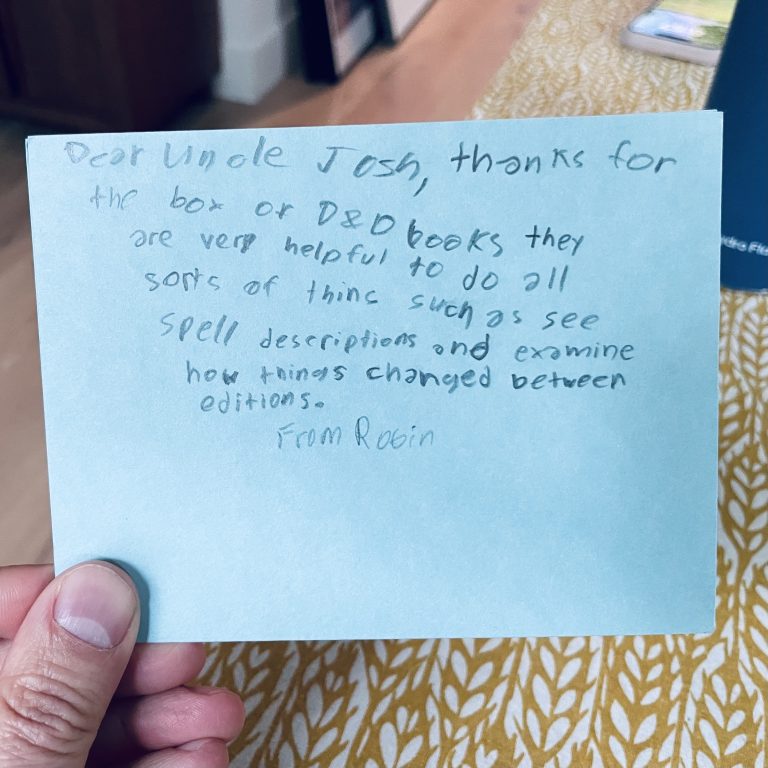 Dear Uncle Josh, thanks for
the box or D&D books they
are very helpful to do all
sorts of thins such as see
spell descriptions and examine
how things changed between
editions.
From Robin